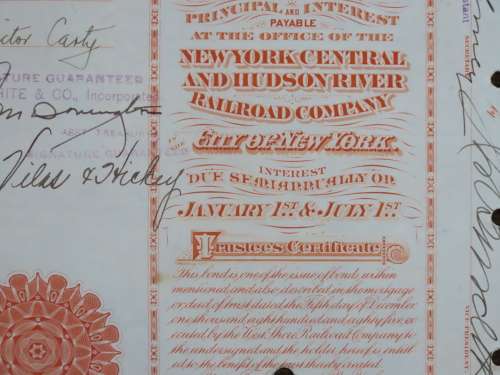 PRINCIPAL AND INTEREST
PAYABLE
AT THE OFFICE OF THE
NEW YORK CENTRAL
AND HUDSON RIVER
RAILROAD COMPANY
IN THE
CITY OF NEW YORK.
INTEREST
DUE SEMIANNUALLY ON
JANUARY 1ST & JULY 1ST.
Trustee's Certificate
This bond is one of the issue of bonds within
mentioned and also described in the mortgage
or deed of trust dated the Fifth day of December
one thousand eight hundred and eighty five, ex
ecuted by the West Shore Railroad Company to
the undersigned and the holder hereof is entitl
ed to the benefit of the trust thereby created
Casty
ATURE GUARANTEED
HITE & CO., Incorporated
ASST. TREASURER
SIGNATURE GUARANTEED
Vilas & Hickey
SECRETARY
VICE PRESIDENT